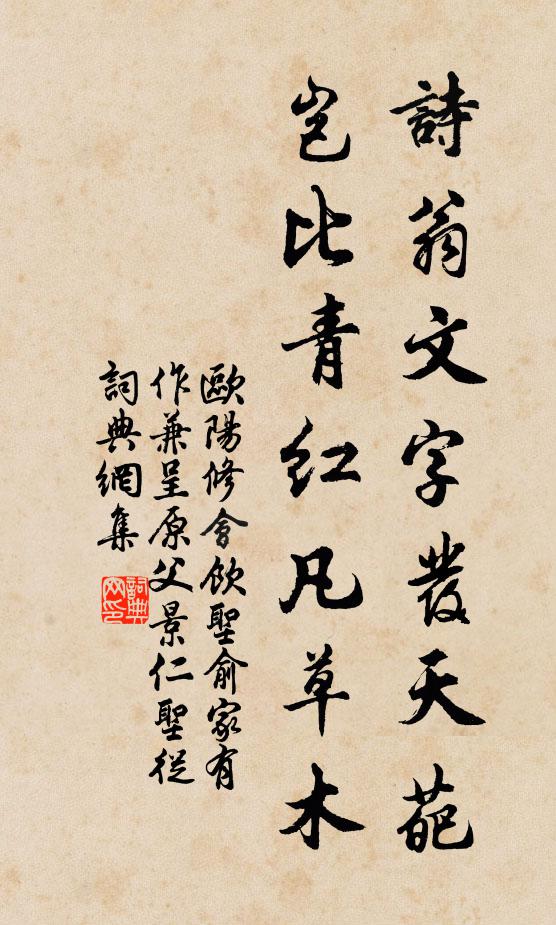 詩翁文字發天葩
豈比青紅凡草木
歐陽修會飲聖俞家有
作兼呈原父景仁聖從
詞典網集
詞典網印